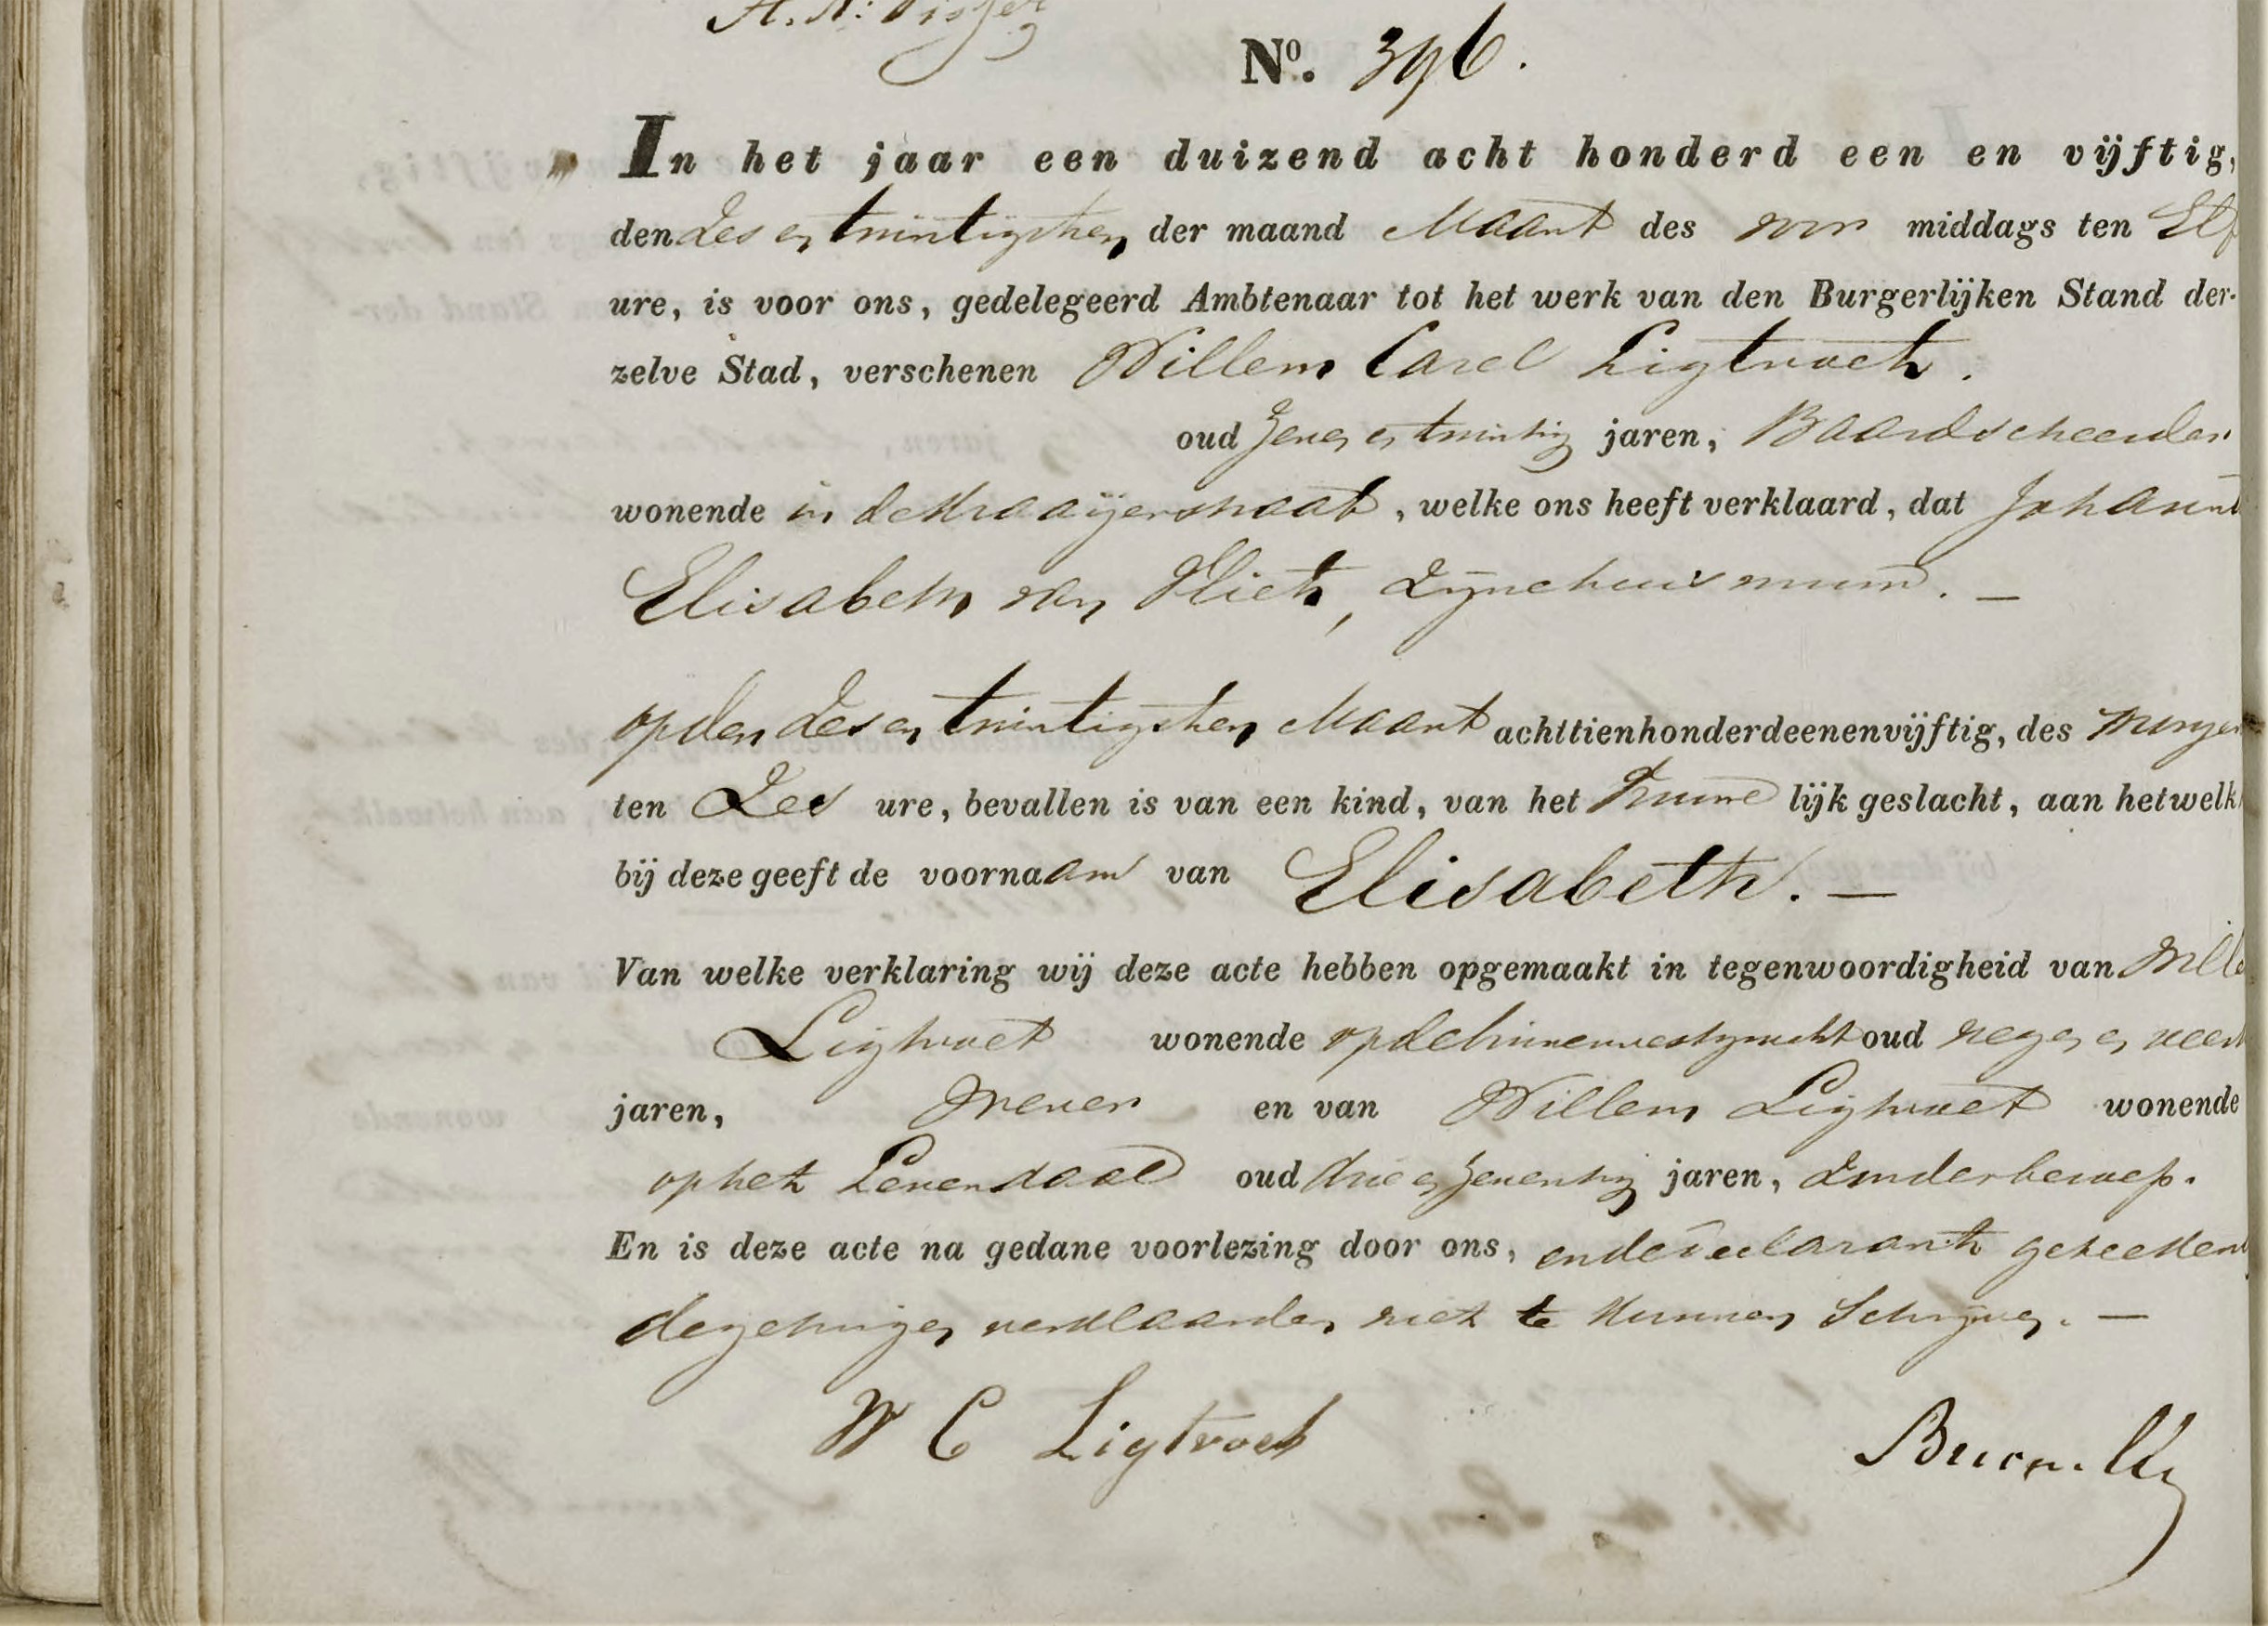 A. N: Visser
No. 396.
In het jaar een duizend acht honderd een en vijftig,
den Zes en twintigsten der maand Maart des voor middags ten Elf
ure, is voor ons, gedelegeerd Ambtenaar tot het werk van den Burgerlijken Stand der-
zelve Stad, verschenen Willem Carel Ligtvoet.
oud Zeven en twintig jaren, Baardscheerder
wonende in de Kraaijerstraat, welke ons heeft verklaard, dat
Elisabeth van Vliet, Zijne huisvrouw. —
op den Zes en twintigsten Maart achttienhonderdeenenvijftig, des morgen
ten Zes ure, bevallen is van een kind, van het Vrouwe lijk geslacht, aan hetwelk
bij deze geeft de voornaam van Elisabeth. —
Van welke verklaring wij deze acte hebben opgemaakt in tegenwoordigheid van
Ligtvoet wonende op de binnenvestgracht oud negen en veert
jaren, Wever en van Willem Ligtvoet wonende
op het Levendaal oud drie en zeventig jaren, Zonder beroep.
En is deze acte na gedane voorlezing door ons, en de declarant geteekend
de getuigen verklaarden niet te kunnen Schrijven. —
W C Ligtvoet